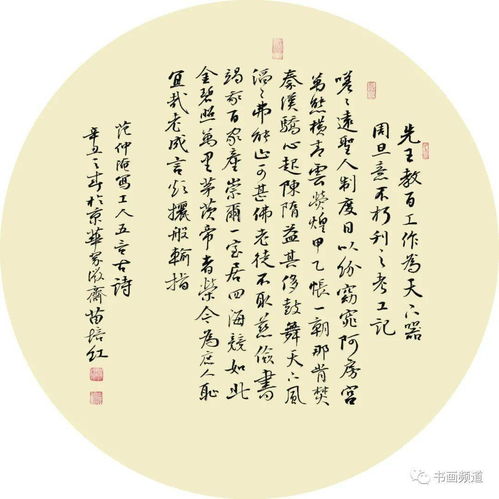 先王教百工作為天下器
周旦意不朽刊之考工記
嗟々遠聖人制度日以紛窈窕阿房宮
萬態橫青雲熒煌甲乙帳一朝那肯焚
秦漢驕心起陳隋益其侈鼓舞天下風
滔々弗能止可甚佛老徒不取慈儉書
竭我百家產崇爾一室居四海競如此
金碧照萬里茅茨帝者榮今為庶人恥
宜哉老成言欲攘般輸指
范仲淹寫工人五言古詩
辛丑之春於京華齋苗培紅
书画频道